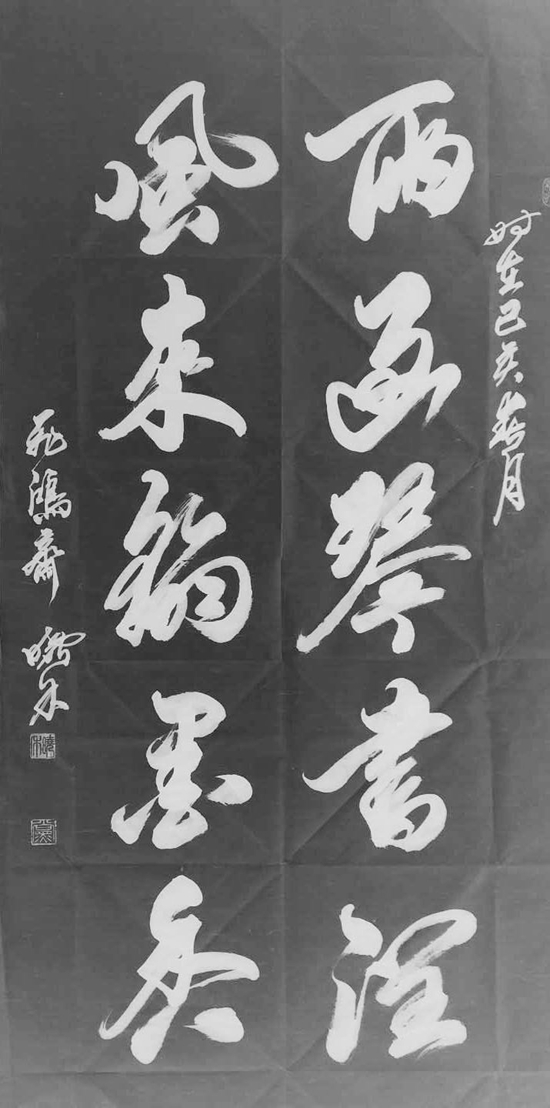 時在己亥春月
雨過琴書潤
風來翰墨香
飛鴻齋